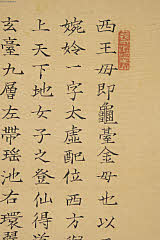 西王母即龜臺金母也以
婉妗一字太虛配位西方
上天下地女子之登仙得
玄臺九層左帶瑤池右環翠